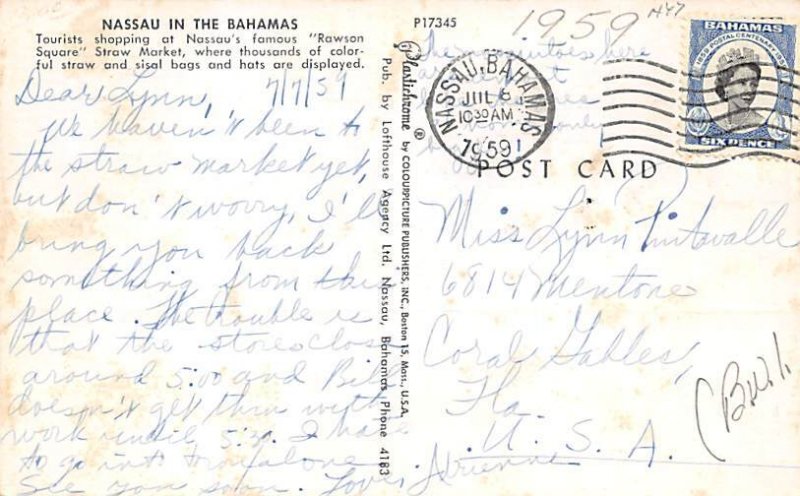 NASSAU IN THE BAHAMAS
Tourists shopping at Nassau's famous "Rawson
Square" Straw Market, where thousands of color-
ful straw and sisal bags and hats are displayed.
Dear Lynn, 7/7/59
We haven't been to
the straw market yet,
but don't worry, I'll
bring you back
something from this
place. The trouble is
that the stores close
around 5:00 and Bill
doesn't get thru with
work until 5:30. I have
to go into town alone
See you soon. Love, Adrienne
P17345
1959
The mosquitoes here
are
only
NASSAU, BAHAMAS
JUL 8
10 30 AM
1959
BAHAMAS
1859 POSTAL CENTENARY 1959
SIX PENCE
POST CARD
Plastichrome ® by COLOURPICTURE PUBLISHERS, INC., Boston 15, Mass., U.S.A.
Pub. by Lofthouse Agency Ltd. Nassau, Bahamas, Phone 4183
Miss Lynn Pintavalle
6814 Mentone
Coral Gables,
Fla.
U. S. A.